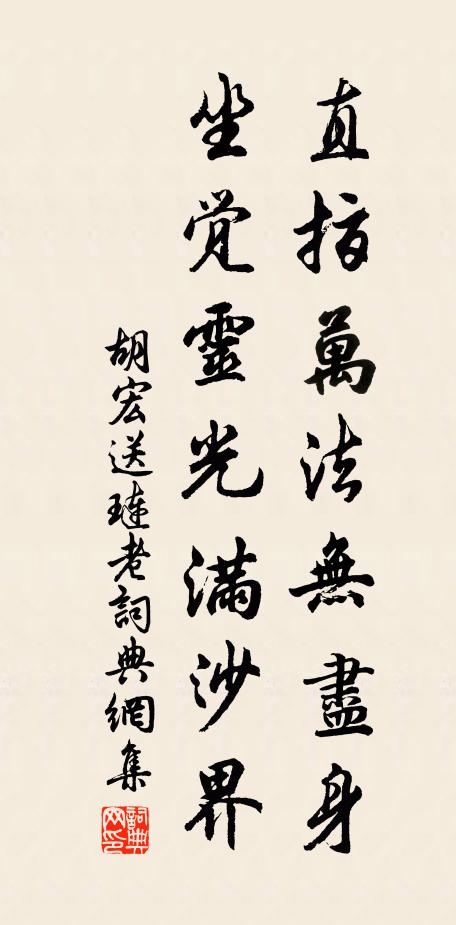 直指萬法無盡身
坐覺靈光滿沙界
胡宏送璉老詞典網集
詞典網印